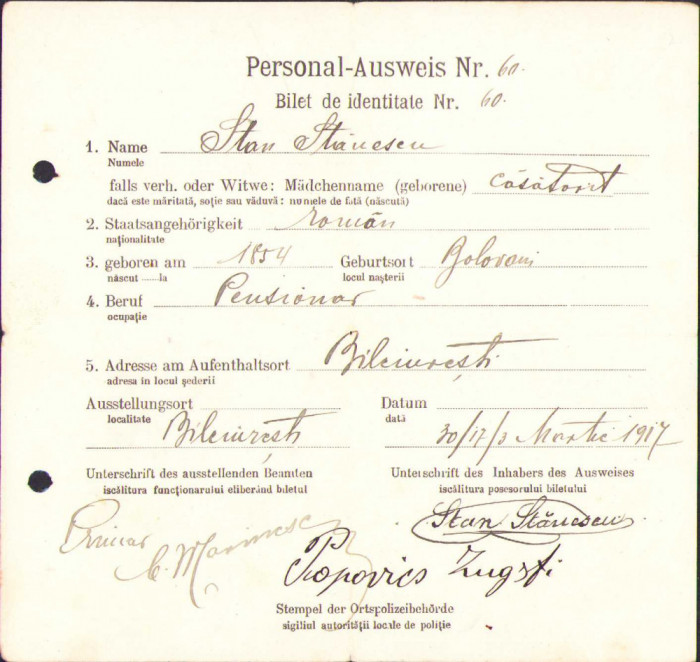 Personal-Ausweis Nr. 60.
Bilet de identitate Nr. 60.
1. Name Stan Stănescu
Numele
falls verh. oder Witwe: Mädchenname (geborene) căsătorit
dacă este măritată, soție sau văduvă: numele de fată (născută)
2. Staatsangehörigkeit român
naționalitate
3. geboren am 1854 Geburtsort Bolovani
născut —la locul nașterii
4. Beruf Pensionar
ocupație
5. Adresse am Aufenthaltsort Bilciurești
adresa in locul șederii
Ausstellungsort Datum
localitate dată
Bilciurești 30/17/3 Martie 1917
Unterschrift des ausstellenden Beamten Unterschrift des Inhabers des Ausweises
iscălitura funcționarului eliberând biletul iscălitura posesorului biletului
Primar Stan Stănescu
Popovics Zugsf.
Stempel der Ortspolizeibehörde
sigiliul autorității locale de poliție